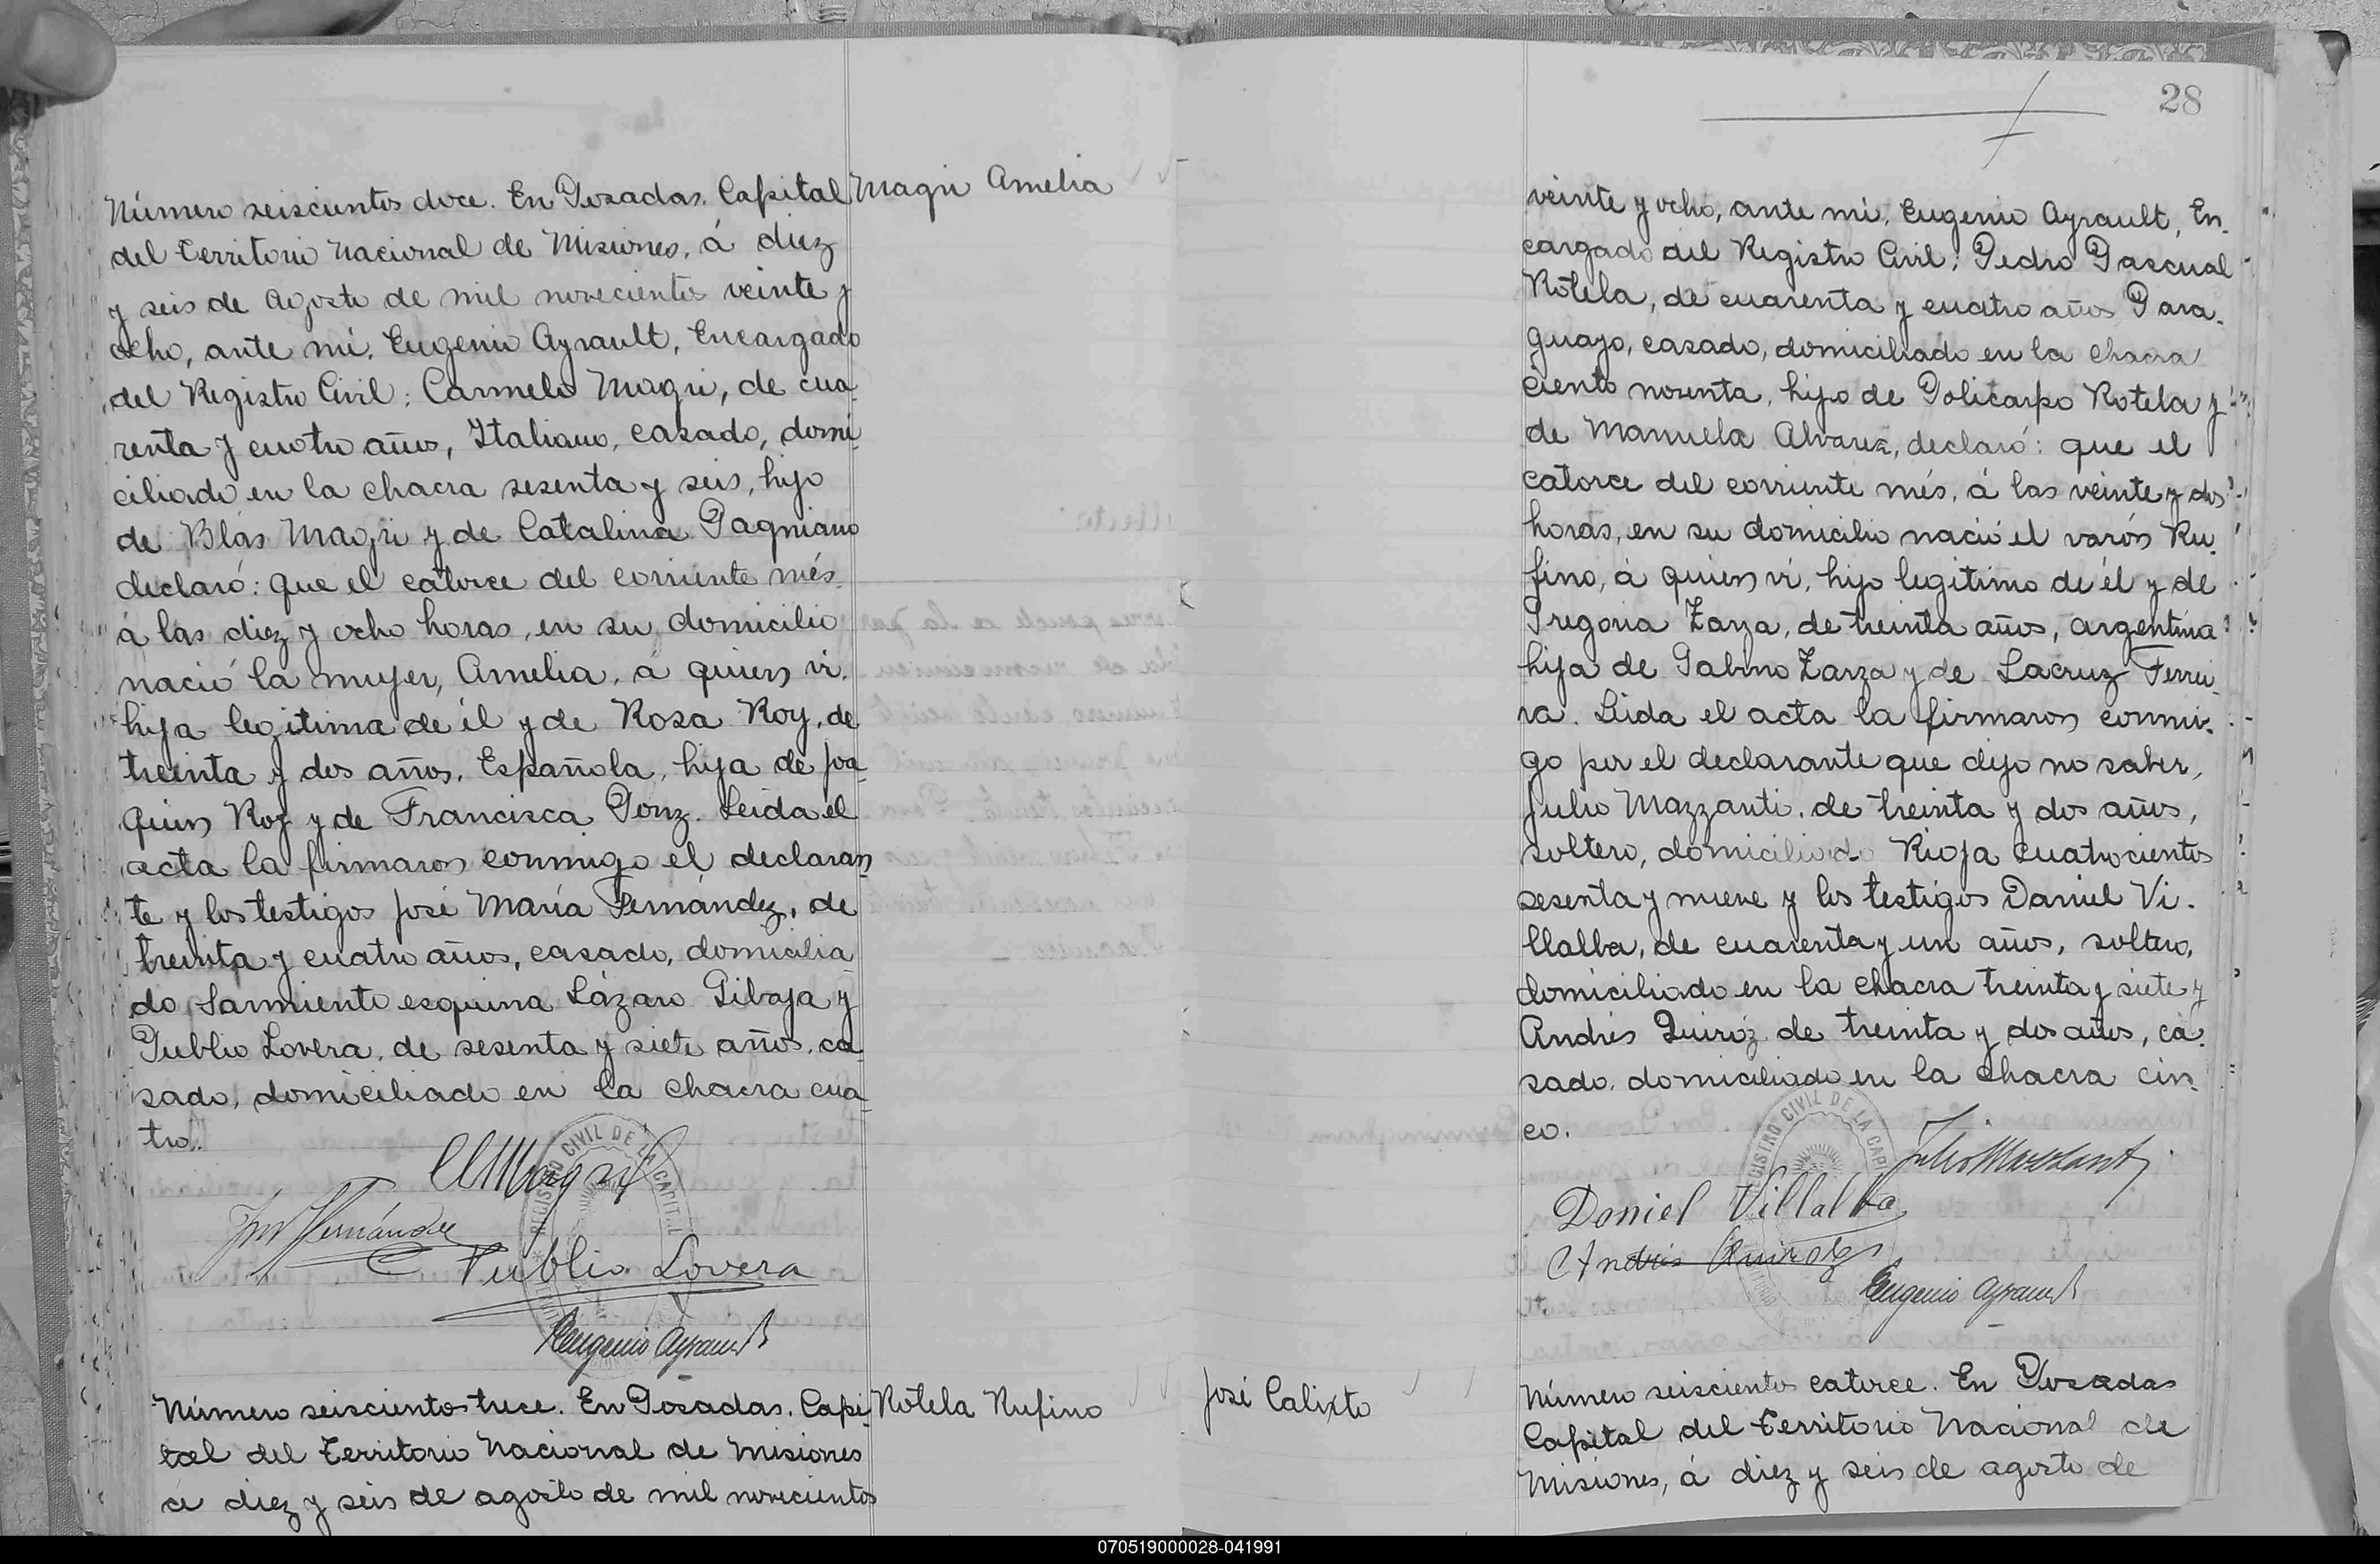 Número seiscientos doce. En Posadas. Capital
del Territorio Nacional de Misiones, á diez
y seis de Agosto de mil novecientos veinte y
ocho, ante mí, Eugenio Ayrault, Encargado
del Registro Civil: Carmelo Magri, de cua-
renta y cuatro años, Italiano, casado, domi-
ciliado en la chacra sesenta y seis, hijo
de Blás Magri y de Catalina Pagniano
declaró: que el catorce del corriente més.
á las diez y ocho horas, en su domicilio
nació la mujer, Amelia, á quien ví.
hija legitima de él y de Rosa Roy, de
treinta y dos años, Española, hija de Joa-
quin Roy y de Francisca Ponz. Leida el
acta la firmaron conmigo el declaran
te y los testigos José María Fernández, de
treinta y cuatro años, casado, domicilia-
do Sarmiento esquina Lázaro Gibaja y
Publio Lovera, de sesenta y siete años, ca
sado, domiciliado en la chacra cua-
tro.
Magri Amelia
Publio Lovera
Eugenio Ayrault
REGISTRO CIVIL DE LA CAPITAL
Número seiscientos trece. En Posadas. Capi-
tal del Territorio Nacional de Misiones
á diez y seis de agosto de mil novecientos
Rotela Rufino
28
veinte y ocho, ante mí, Eugenio Ayrault, En-
cargado del Registro Civil: Pedro Pascual
Rotela, de cuarenta y cuatro años Para-
guayo, casado, domiciliado en la chacra
ciento noventa, hijo de Policarpo Rotela y
de Manuela Alvarez, declaró: que el
catorce del corriente més, á las veinte y dos
horas, en su domicilio nació el varón Ru-
fino, á quien ví, hijo legitimo de él y de
Gregoria Zarza, de treinta años, argentina
hija de Gabino Zarza y de Lacruz Ferrei-
ra. Leida el acta la firmaron conmi-
go por el declarante que dijo no saber,
Julio Mazzanti, de treinta y dos años,
soltero, domiciliado Rioja cuatrocientos
sesenta y nueve y los testigos Daniel Vi-
llalba, de cuarenta y un años, soltero,
domiciliado en la chacra treinta y siete y
Andrés Quiróz de treinta y dos años, ca-
sado, domiciliado en la chacra cin-
co.
Julio Mazzanti
Daniel Villalba
Andrés Quiroz
Eugenio Ayrault
José Calixto
Número seiscientos catorce. En Posadas
Capital del Territorio Nacional de
Misiones, á diez y seis de agosto de
070519000028-041991